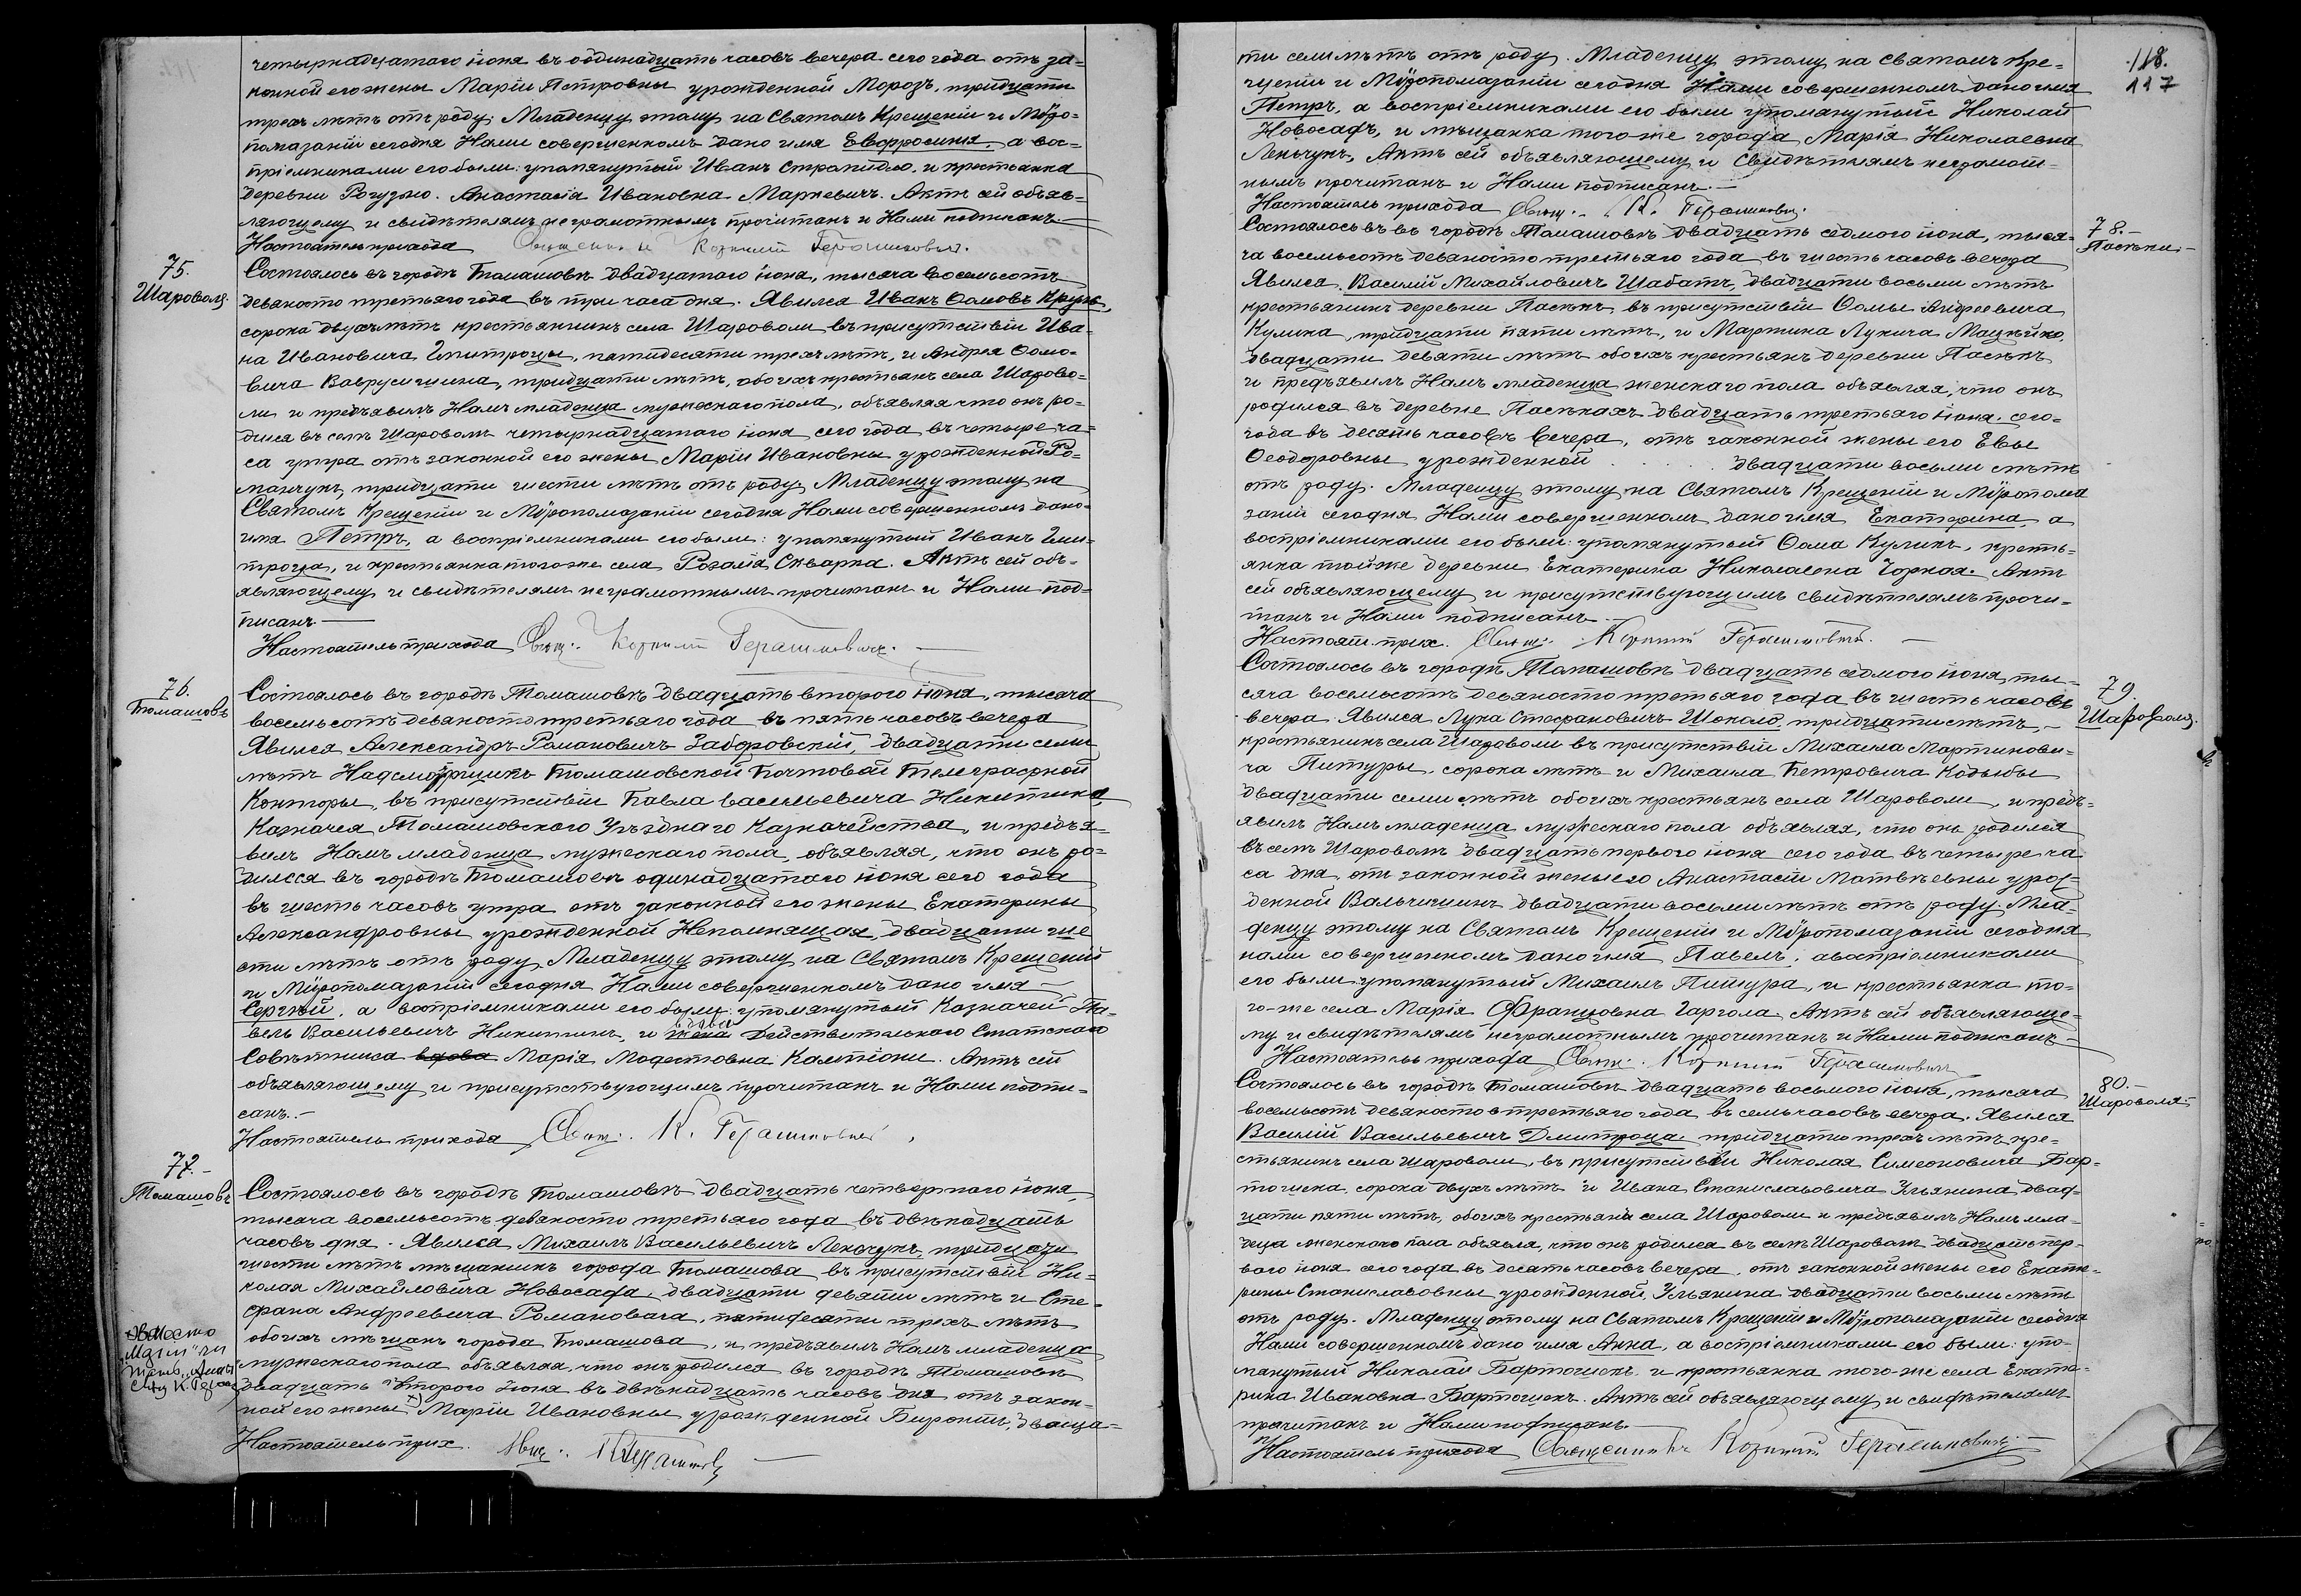 четырнадцатаго іюня въ одинадцать часовъ вечера сего года отъ за-
конной его жены Маріи Петровны урожденной Морозъ, тридцати
трехъ лѣтъ отъ роду. Младенцу этому на Святомъ Крещеніи и Мѵро-
помазаніи сегодня Нами совершенномъ дано имя Евфросинія, а вос-
пріемниками его были: упомянутый Иванъ и крестьянка
деревни Рогузно Анастасія Ивановна Маркевичъ. Актъ сей объяв-
ляющему и свидѣтелямъ неграмотнымъ прочитанъ и Нами подписанъ.—
Настоятель прихода Священникъ Корнилій Герасимовичъ.
75.
Шароволя.
Состоялось въ городѣ Томашовѣ двадцатаго іюня, тысяча восемьсотъ
девяносто третьяго года въ три часа дня. Явился Иванъ Ѳомовъ Крукъ,
сорока двухъ лѣтъ крестьянинъ села Шароволи въ присутствіи Ива-
на Ивановича Гмитроцы, пятидесяти трехъ лѣтъ, и Андрея Ѳомо-
вича Ваврусишина, тридцати лѣтъ, обоихъ крестьянъ села Шарово-
ли и предъявилъ Намъ младенца мужескаго пола, объявляя что онъ ро-
дился въ селѣ Шароволѣ четырнадцатаго іюня сего года въ четыре ча-
са утра отъ законной его жены Маріи Ивановны урожденной Ро-
манчукъ, тридцати шести лѣтъ отъ роду. Младенцу этому на
Святомъ Крещеніи и Мѵропомазаніи сегодня Нами совершенномъ дано
имя Петръ, а воспріемниками его были: упомянутый Иванъ Гми-
троца, и крестьянка того же села Розалія Скварка. Актъ сей объ-
являющему и свидѣтелямъ неграмотнымъ прочитанъ и Нами под-
писанъ.—
Настоятель прихода Свящ. Корнилій Герасимовичъ.—
76.
Томашовъ
Состоялось въ городѣ Томашовѣ двадцать второго іюня, тысяча
восемьсотъ девяносто третьяго года въ пять часовъ вечера
Явился Александръ Романовичъ Заборовскій, двадцати семи
лѣтъ Надсмотрщикъ Томашовской Почтовой Телеграфной
Конторы, въ присутствіи Павла Васильевича Никитина,
Казначея Томашовского Уѣзднаго Казначейства, и предъя-
вилъ Намъ младенца мужескаго пола, объявляя, что онъ ро-
дился въ городѣ Томашовѣ одинадцатаго іюня сего года
въ шесть часовъ утра отъ законной его жены Екатерины
Александровны урожденной Непомнящая, двадцати ше
сти лѣтъ отъ роду. Младенцу этому на Святомъ Крещеніи
и Мѵропомазаніи сегодня Нами совершенномъ дано имя—
Сергѣй, а воспріемниками его были: упомянутый Казначей Па-
велъ Васильевичъ Никитинъ, и вдова Дѣйствительного Статскаго
Совѣтника вдова Марія Модестовна. Актъ сей
объявляющему и присутствующимъ прочитанъ и Нами подпи-
санъ.—
Настоятель прихода Свящ. К. Герасимовичъ
77.—
Томашовъ
Состоялось въ городѣ Томашовѣ двадцать четвертаго іюня,
тысяча восемьсотъ девяносто третьяго года въ двѣнадцать
часовъ дня. Явился Михаилъ Васильевичъ Ленчукъ, тридцати
шести лѣтъ мѣщанинъ города Томашова въ присутствіи Ни-
колая Михайловича Новосада, двадцати девяти лѣтъ и Сте-
фана Андреевича Романовича, пятидесяти трехъ лѣтъ
обоихъ мѣщанъ города Томашова, и предъявилъ Намъ младенца
мужескаго пола объявляя, что онъ родился въ городѣ Томашовѣ
двадцать второго іюня въ двѣнадцать часовъ дня отъ закон-
ной его жены Маріи Ивановны урожденной двадца-
Настоятель прих. Свящ. К. Герасимовичъ
118.
117
ти семи лѣтъ отъ роду. Младенцу этому на Святомъ Кре-
щеніи и Мѵропомазаніи сегодня Нами совершенномъ дано имя
Петръ, а воспріемниками его были упомянутый Николай
Новосадъ, и мѣщанка того-же города Марія Николаевна
Ленчукъ. Актъ сей объявляющему и Свидѣтелямъ неграмот-
нымъ прочитанъ и Нами подписанъ.—
Настоятель прихода Свящ. К. Герасимовичъ.
78.—
Пасѣки.—
Состоялось въ въ городѣ Томашовѣ двадцать седмого іюня, тыся-
ча восемьсотъ девяносто третьяго года въ шесть часовъ вечера
Явился Василій Михайловичъ Шабатъ, двадцати восьми лѣтъ
крестьянинъ деревни Пасѣкъ въ присутствіи Ѳомы Андреевича
Кулика, тридцати пяти лѣтъ, и Мартина Лукича Мацѣйко,
двадцати девяти лѣтъ обоихъ крестьянъ деревни Пасѣкъ
и предъявилъ Намъ младенца женскаго пола объявляя, что онъ
родился въ деревне Пасѣкахъ двадцать третьяго іюня сего-
года въ десять часовъ вечера, отъ законной жены его Евы
Ѳеодоровны урожденной . . . . . двадцати восьми лѣтъ
отъ роду. Младенцу этому на Святомъ Крещеніи и Мѵропома
заніи сегодня Нами совершенномъ дано имя Екатерина, а
воспріемниками его были: упомянутый Ѳома Куликъ, кресть-
янка тойже деревни Екатерина Николаевна Чорная. Актъ
сей объявляющему и присутствующимъ свидѣтелямъ прочи-
танъ и Нами подписанъ.—
Настоят. прих. Свящ. Корнилій Герасимовичъ.—
79.
Шароволя.
Состоялось въ городѣ Томашовѣ двадцать седмого іюня, ты-
сяча восемьсотъ девяносто третьяго года въ шесть часовъ
вечера Явился Лука Стефановичъ Шокало, тридцати лѣтъ,—
крестьянинъ села Шароволи въ присутствіи Михаила Мартинови-
ча Питуры, сорока лѣтъ и Михаила Петровича Кодыбы
двадцати семи лѣтъ обоихъ крестьянъ села Шароволи, и предъ-
явилъ Намъ младенца мужескаго пола объявляя, что онъ родился
въ селѣ Шароволѣ двадцать перваго іюня сего года въ четыре ча
са дня, отъ законной жены его Анастасіи Матвѣевны урож-
денной двадцати восьми лѣтъ отъ роду. Мла-
денцу этому на Святомъ Крещеніи и Мѵропомазаніи сегодня
нами совершенномъ дано имя Павелъ, а воспріемниками
его были: упомянутый Михаилъ Питура, и крестьянка то-
го-же села Марія Францовна Гаргола. Актъ сей объявляюще-
му и свидѣтелямъ неграмотнымъ прочитанъ и Нами подписанъ.—
Настоятель прихода Свящ. Корнилій Герасимовичъ
80.—
Шароволя.—
Состоялось въ городѣ Томашовѣ двадцать восьмого іюня, тысяча
восемьсотъ девяносто третьяго года въ семь часовъ вечера. Явился
Василій Васильевичъ Дмитроца тридцати трехъ лѣтъ кре-
стьянинъ села Шароволи, въ присутствіи Николая Симеоновича Бар-
тошика сорока двухъ лѣтъ и Ивана Станиславовича Ульянина двад-
цати пяти лѣтъ, обоихъ крестьянъ села Шароволи и предъявилъ Намъ мла-
денца женскаго пола объявля, что онъ родился въ селѣ Шароволѣ двадцать пер-
ваго іюня сего года въ десять часовъ вечера, отъ законной жены его Екате-
рины Станиславовны урожденной Ульянина двадцати восьми лѣтъ
отъ роду. Младенцу этому на Святомъ Крещеніи и Мѵропомазаніи сегодня
Нами совершенномъ дано имя Анна, а воспріемниками его были: упо-
мянутый Николай Бартошикъ и крестьянка того-же села Екате-
рина Ивановна Бартошикъ. Актъ сей объявляющему и свидѣтелямъ
прочитанъ и Нами подписанъ.—
Настоятель прихода Священникъ Корнилій Герасимовичъ.—